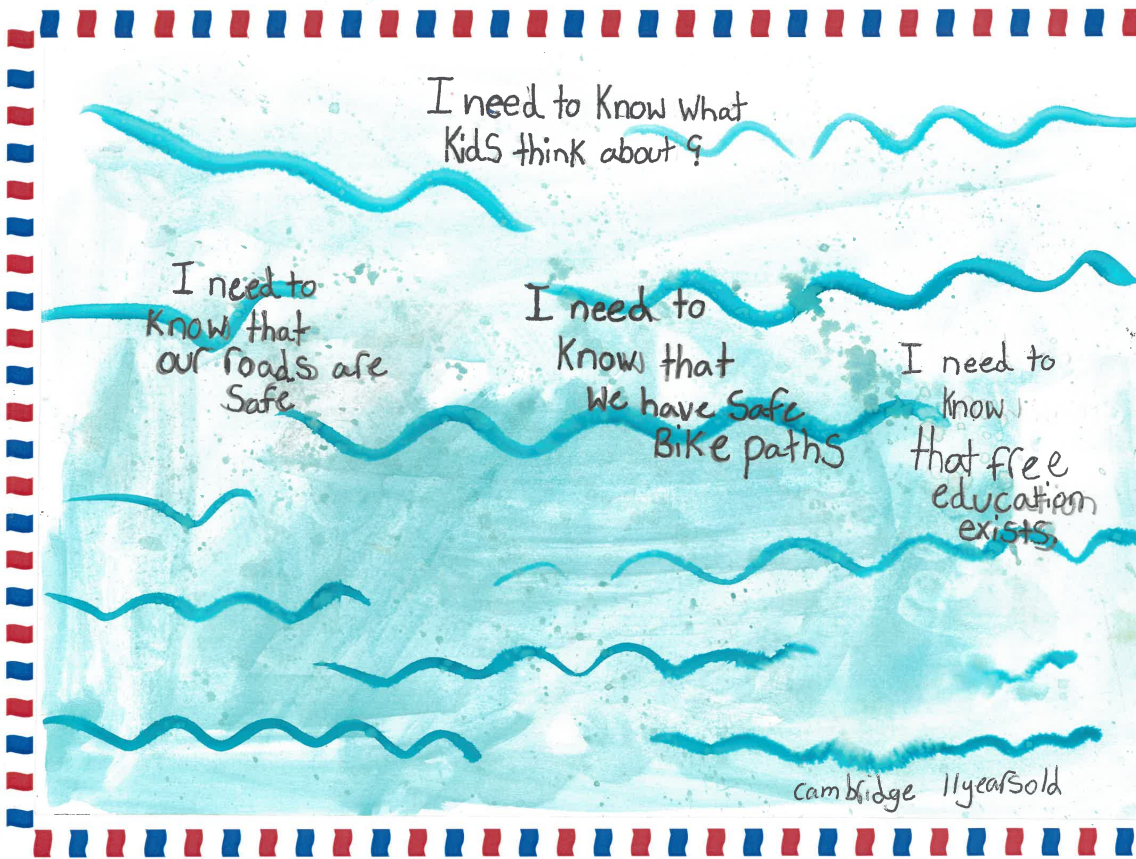 I need to Know what
Kids think about ?
I need to
Know that
our roads are
Safe
I need to
Know that
We have Safe
Bike paths
I need to
Know
that free
education
exists.
cambridge 11 years old